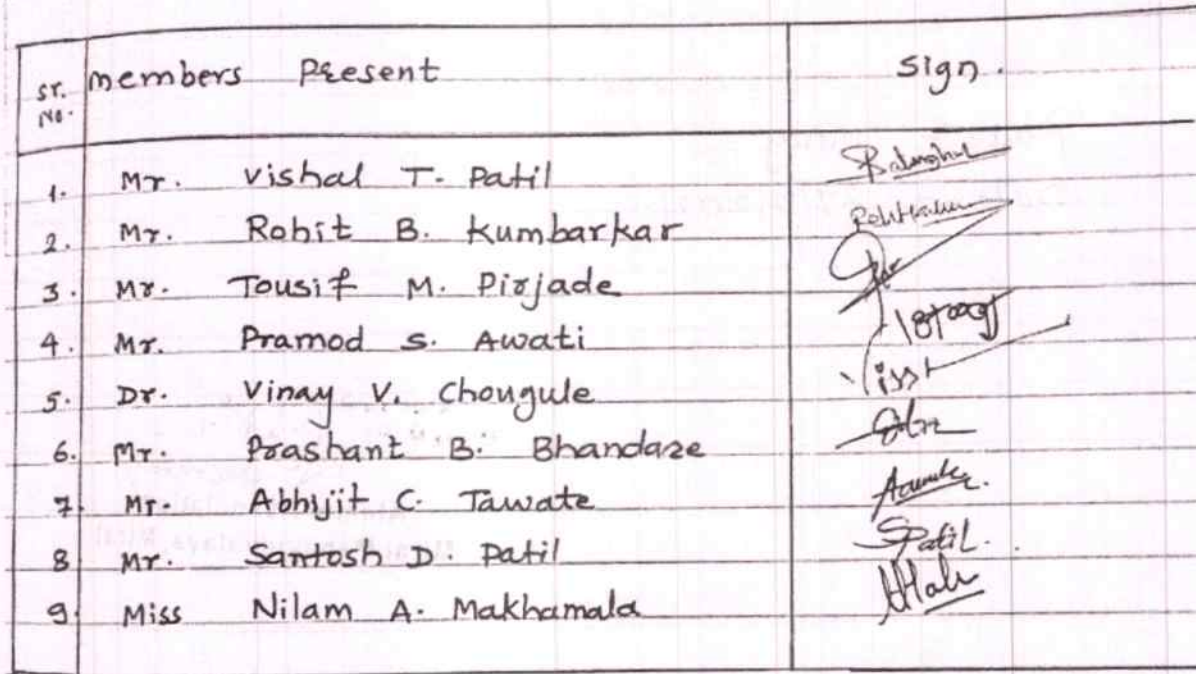 sr. No. members Present sign.
1. Mr. Vishal T. Patil
2. Mr. Rohit B. Kumbarkar
3. Mr. Tousif M. Pirjade
4. Mr. Pramod S. Awati
5. Dr. Vinay V. Chougule
6. Mr. Prashant B. Bhandare
7. Mr. Abhijit C. Tawate
8 Mr. Santosh D. Patil SPatil.
9. Miss Nilam A. Makhamala